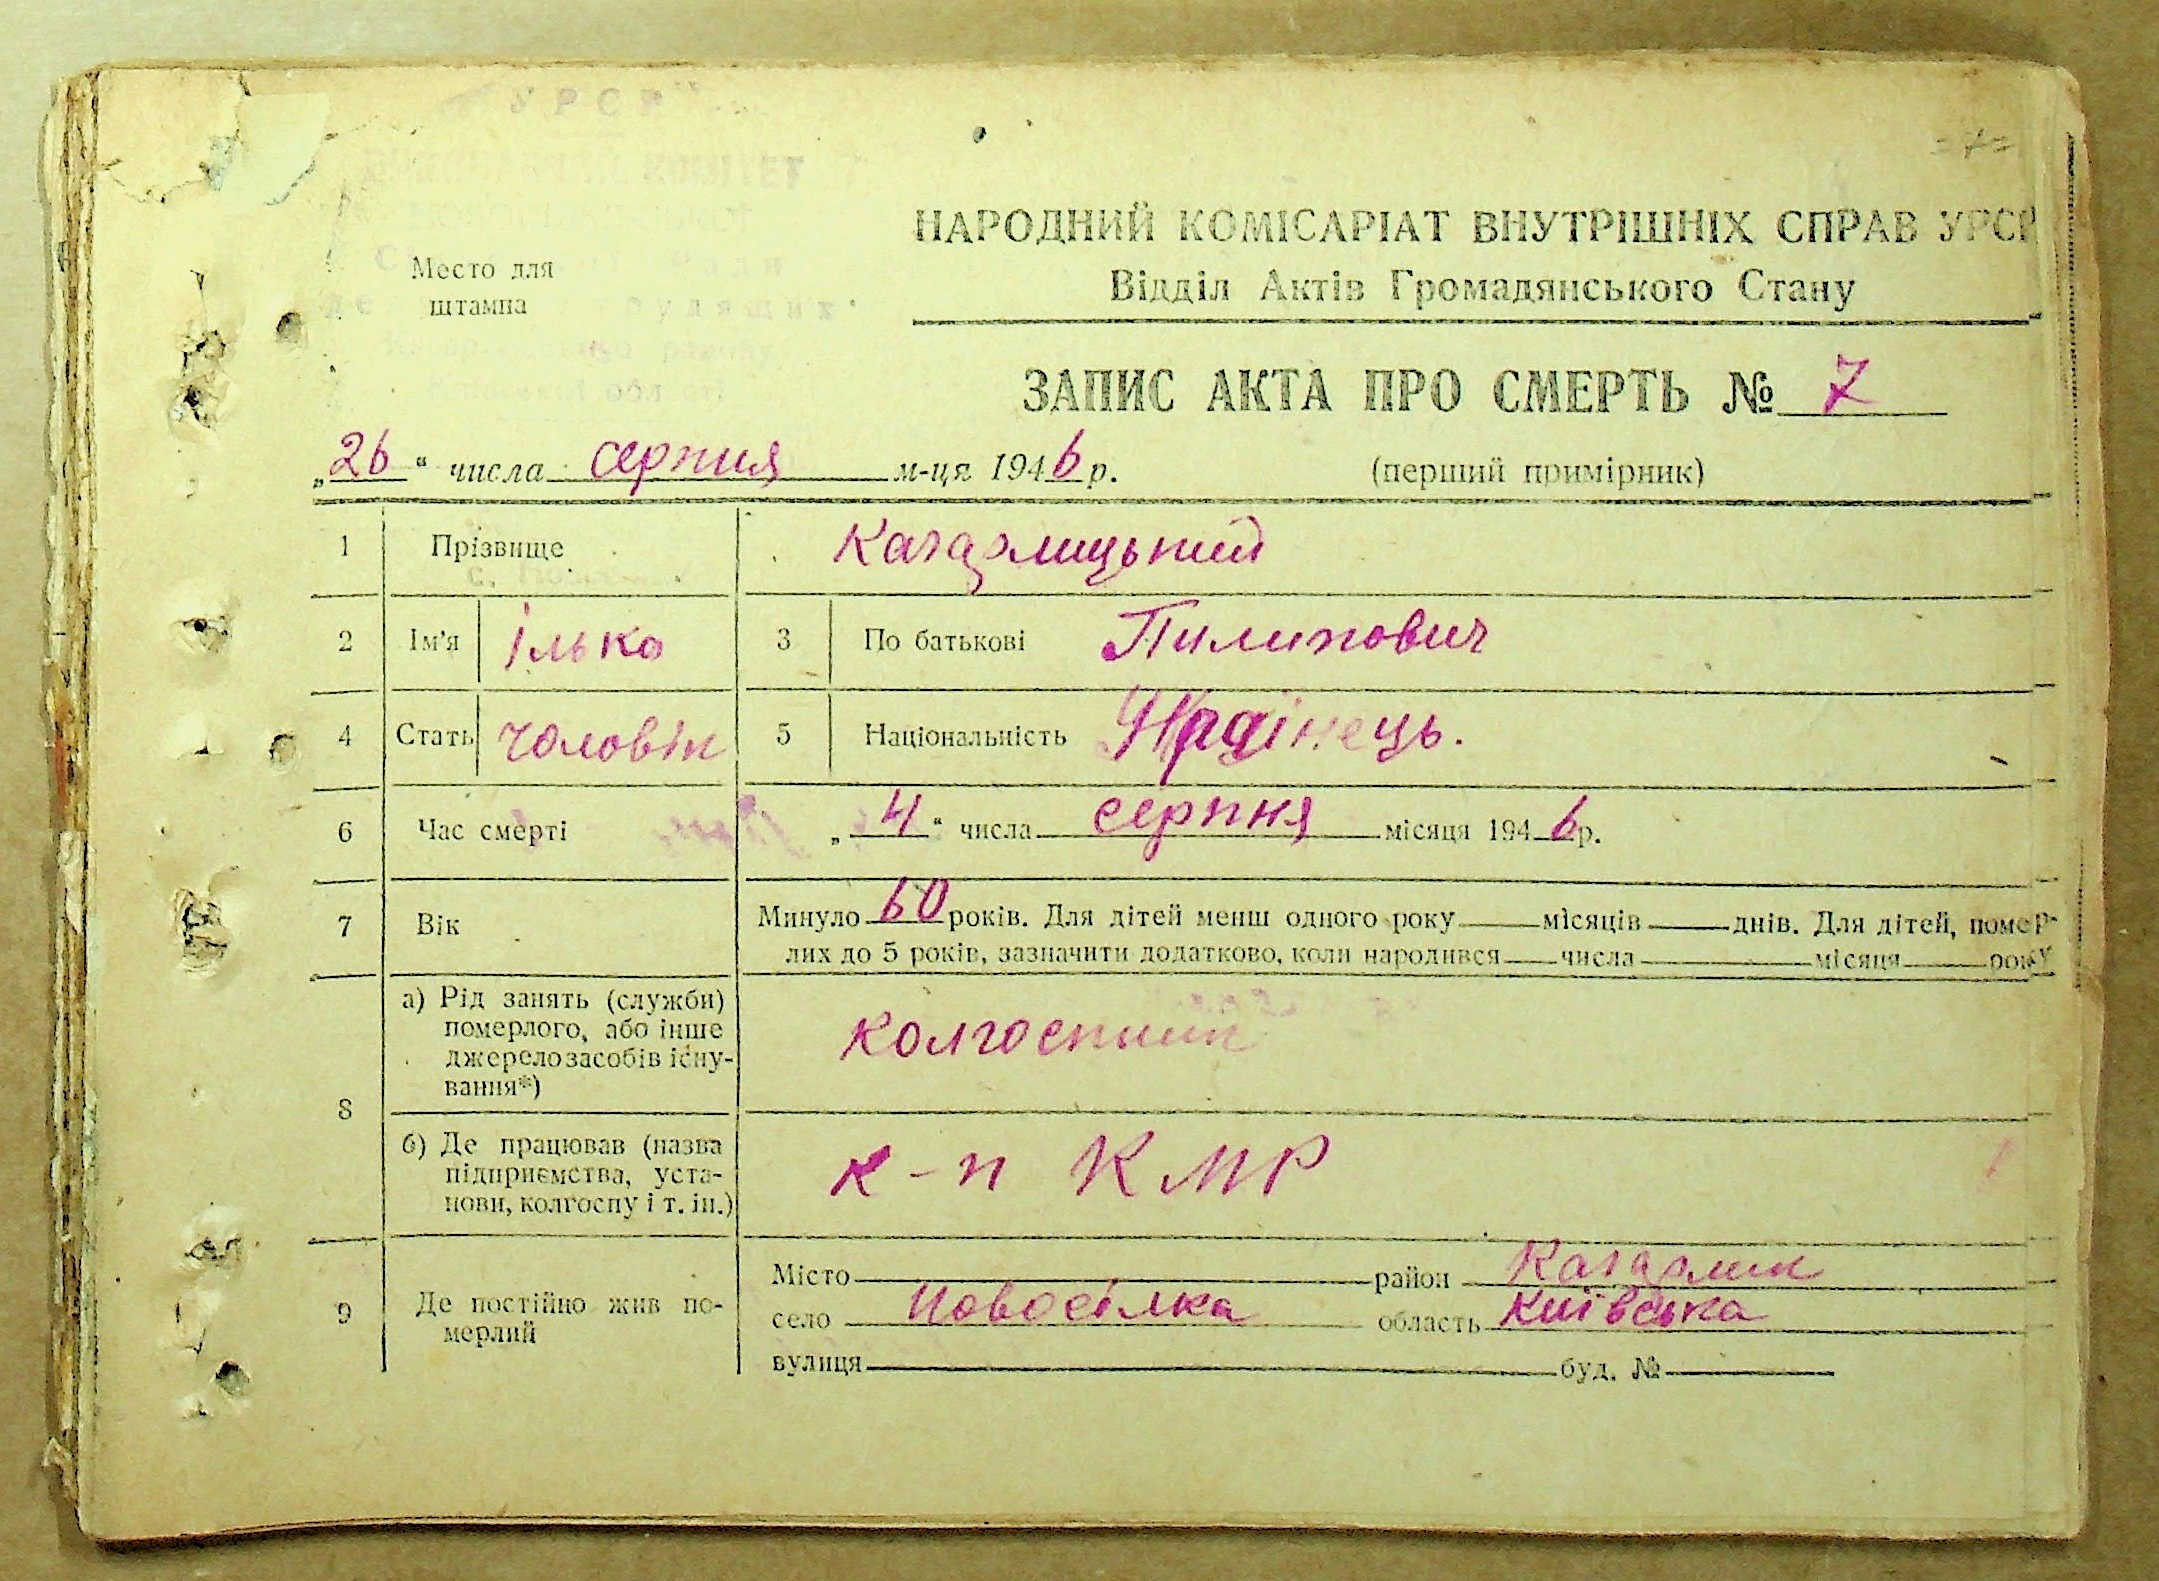 УРСР
КОМІТЕТ
=7=
НАРОДНИЙ КОМІСАРІАТ ВНУТРІШНІХ СПРАВ УРСР
Место для
штампа
Відділ Актів Громадянського Стану
ЗАПИС АКТА ПРО СМЕРТЬ № 7
„26“ числа серпня м-ця 1946 р.
(перший примірник)
1 Прізвище Кагарлицький
2 Ім'я Ілько 3 По батькові Пилипович
4 Стать чоловік 5 Національність Украінець.
6 Час смерті „4“ числа серпня місяця 1946 р.
7 Вік Минуло 60 років. Для дітей менш одного року місяців днів. Для дітей, помер-
лих до 5 років, зазначити додатково, коли народився числа місяця року
8 а) Рід занять (служби)
померлого, або інше
джерело засобів існу-
вання*) колгоспник
б) Де працював (назва
підприємства, уста-
нови, колгоспу і т. ін.) к-п КМР
9 Де постійно жив по-
мерлий
Місто район Кагарлик
село Новосілка область Київська
вулиця буд. №